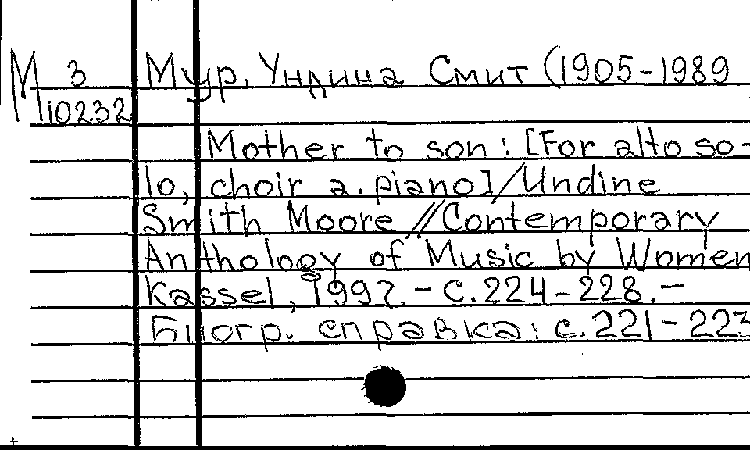 М 3 Мур, Ундина Смит (1905-1989
10232
Mother to son : [For alto so-
lo, choir a. piano] / Undine
Smith Moore // Contemporary
Anthology of Music by Women
Kassel, 1997. - С. 224-228. -
Биогр. справка: с. 221-223